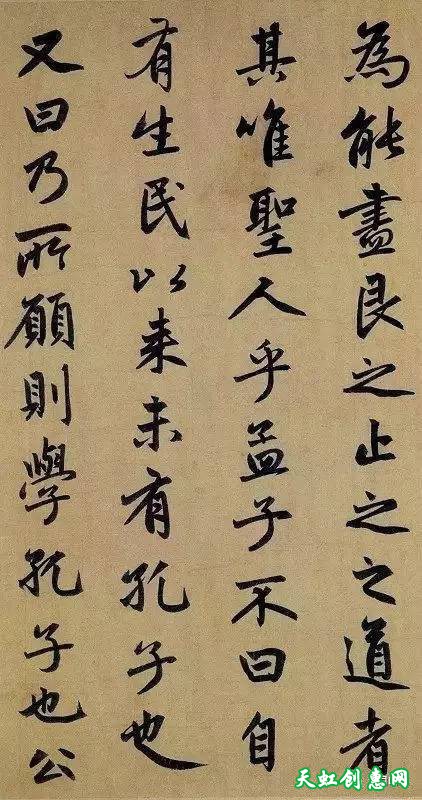 為能盡艮之止之之道者
其唯聖人乎孟子不曰自
有生民以来未有孔子也
又曰乃所願則學孔子也公
天虹创惠网